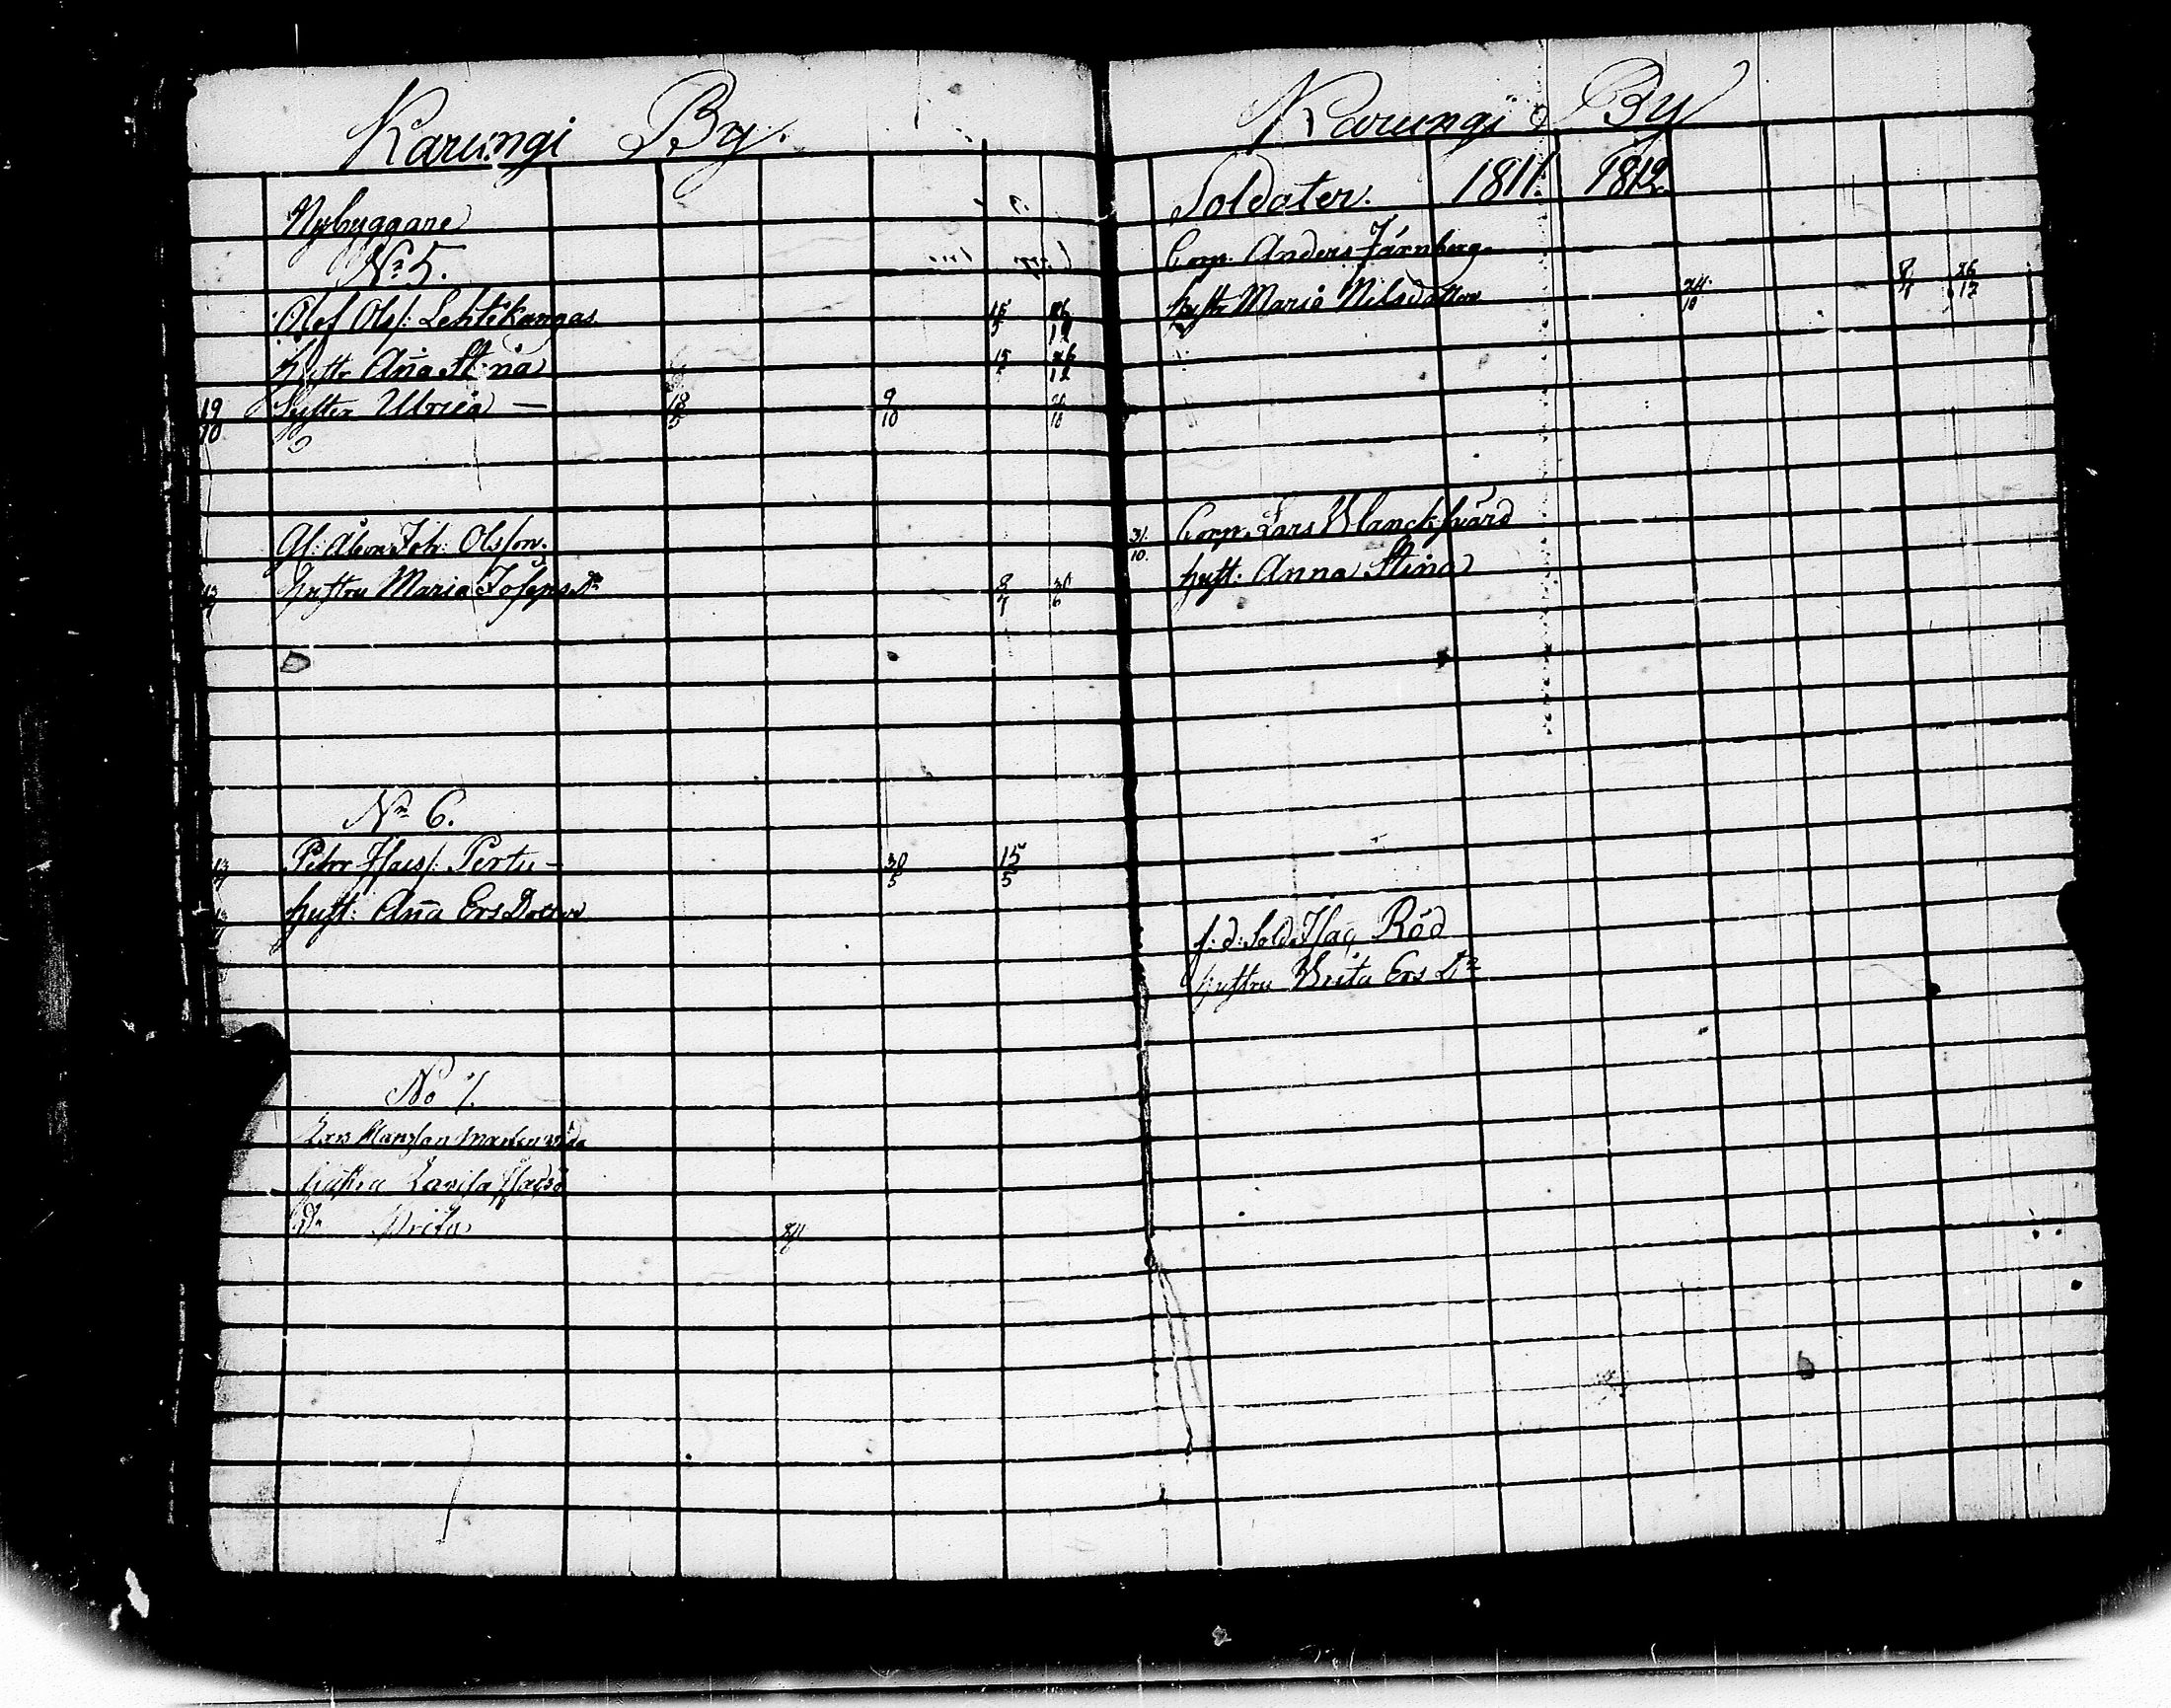 Karungi By.
Nybyggare
No 5.
Olof Olss: Lehtikangas 15/5 26/12
hustr Aña Stina 15/5 26/12
19/10 Syster Ulrica — 18/5 9/10
Gl: Åbon Joh: Olsson.
hustru Maria Josephs Dr
No 6.
Petter Isacss: Pertu — 30/5 15/5
hust: Aña Ers Dotter
No 7.
Lars
hustru Lovisa
Dr Brita
Karungi By
Soldater. 1811. 1812.
Corp: Anders Järnberg
hustr Maria Nilsdotter 24/10 26/12
31/10. Corp. Lars Blanck svärd
hust: Anna Stina
f: d: Sold: Isac Röd
hustru Brita Ers Dr